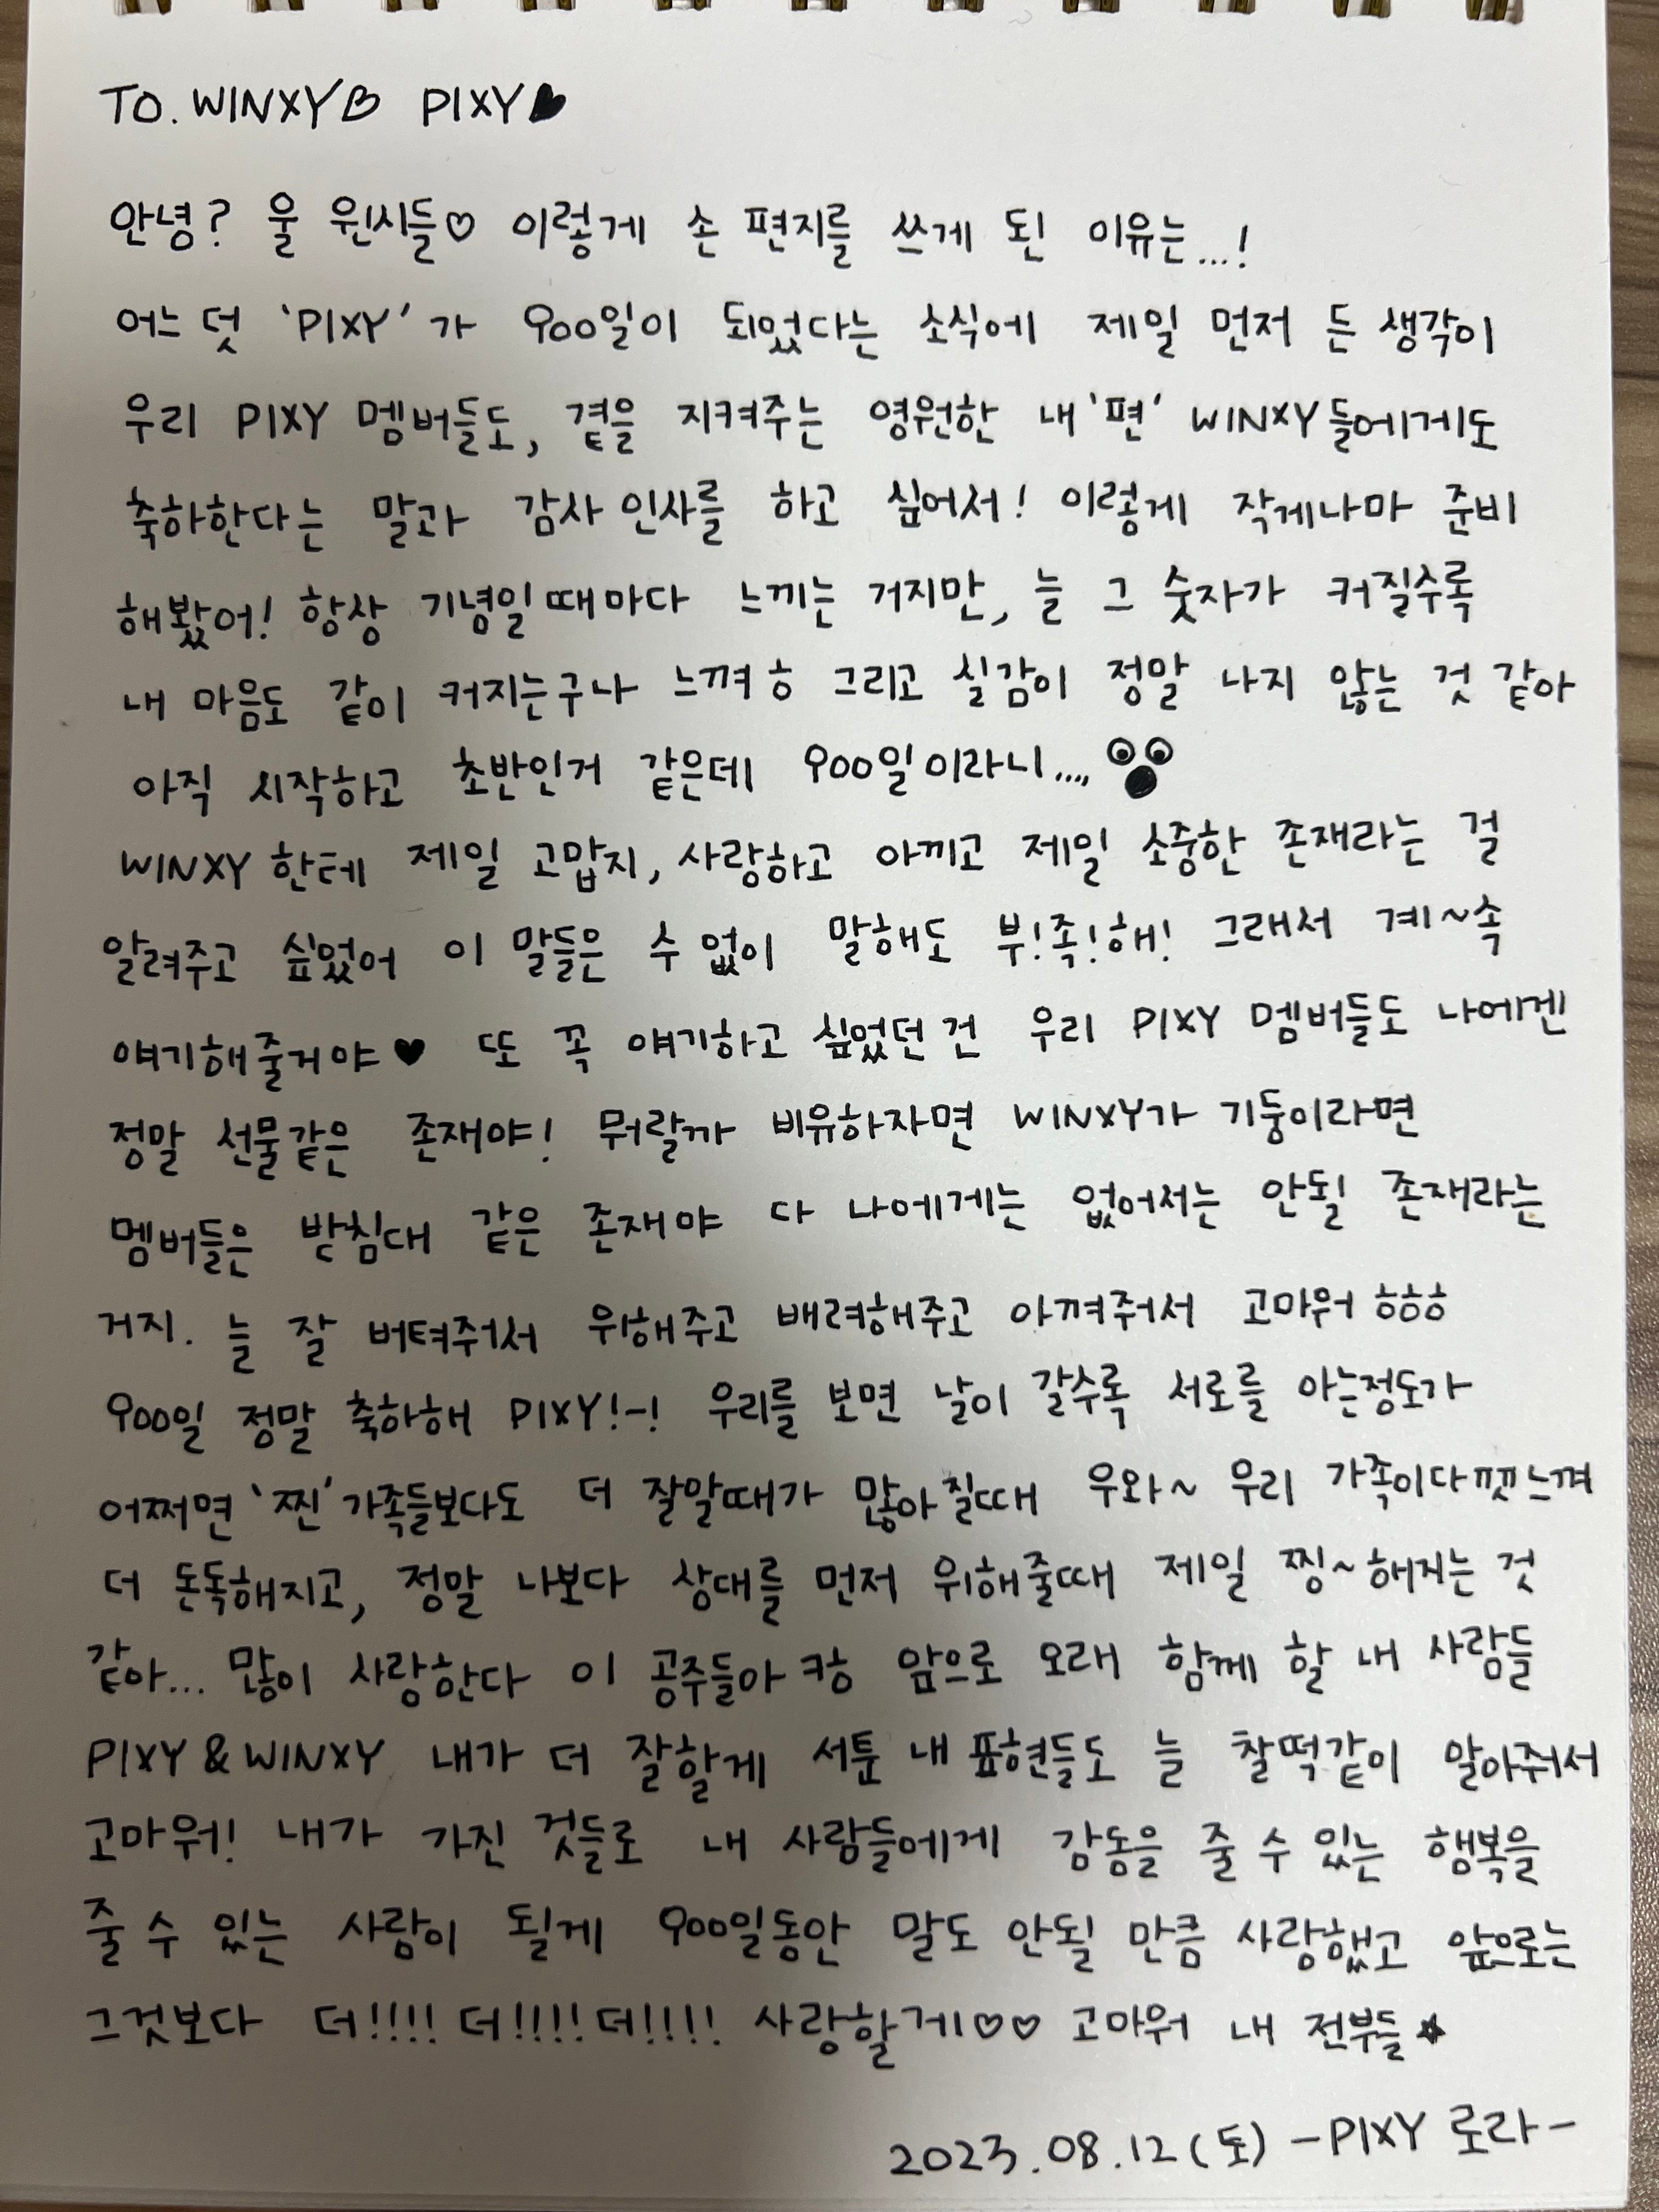 TO. WINXY♡ PIXY♥
안녕? 울 윈시들♡ 이렇게 손 편지를 쓰게 된 이유는...!
어느 덧 'PIXY'가 900일이 되었다는 소식에 제일 먼저 든 생각이
우리 PIXY 멤버들도, 곁을 지켜주는 영원한 내 '편' WINXY들에게도
축하한다는 말과 감사 인사를 하고 싶어서! 이렇게 작게나마 준비
해봤어! 항상 기념일 때마다 느끼는 거지만, 늘 그 숫자가 커질수록
내 마음도 같이 커지는구나 느껴ㅎ 그리고 실감이 정말 나지 않는 것 같아
아직 시작하고 초반인거 같은데 900일이라니....,
WINXY한테 제일 고맙지, 사랑하고 아끼고 제일 소중한 존재라는 걸
알려주고 싶었어 이 말들은 수 없이 말해도 부!족!해! 그래서 계~속
얘기해줄거야♥ 또 꼭 얘기하고 싶었던 건 우리 PIXY 멤버들도 나에겐
정말 선물같은 존재야! 뭐랄까 비유하자면 WINXY가 기둥이라면
멤버들은 받침대 같은 존재야 다 나에게는 없어서는 안될 존재라는
거지. 늘 잘 버텨줘서 위해주고 배려해주고 아껴줘서 고마워 ㅎㅎㅎ
900일 정말 축하해 PIXY!-! 우리를 보면 날이 갈수록 서로를 아는정도가
어쩌면 '찐'가족들보다도 더 잘알때가 많아질때 우와~ 우리 가족이다 느껴
더 돈독해지고, 정말 나보다 상대를 먼저 위해줄때 제일 찡~해지는 것
같아... 많이 사랑한다 이 공주들아 캬ㅎ 앞으로 오래 함께 할 내 사람들
PIXY & WINXY 내가 더 잘할게 서툰 내 표현들도 늘 찰떡같이 알아줘서
고마워! 내가 가진 것들로 내 사람들에게 감동을 줄 수 있는 행복을
줄 수 있는 사람이 될게 900일동안 말도 안될 만큼 사랑했고 앞으로는
그것보다 더!!!! 더!!!! 더!!!! 사랑할게♡♡ 고마워 내 전부들★
2023.08.12(토) -PIXY 로라-